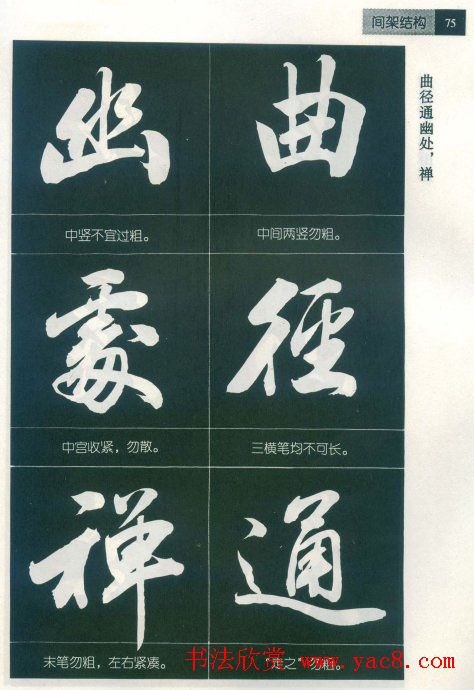 间架结构 75
曲径通幽处，禅
曲
中间两竖勿粗。
徑
三横笔均不可长。
通
"走之"勿粗。
幽
中竖不宜过粗。
處
中宫收紧，勿散。
禅
末笔勿粗，左右紧凑。
书法欣赏 www.yac8.com